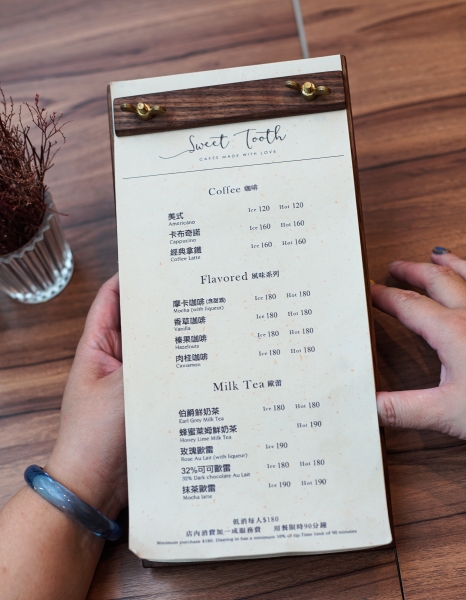 Sweet Tooth
CAKES MADE WITH LOVE
Coffee 咖啡
美式 Ice 120 Hot 120
Americano
卡布奇諾 Ice 160 Hot 160
Cappucino
經典拿鐵 Ice 160 Hot 160
Coffee Latte
Flavored 風味系列
摩卡咖啡 (含甜酒) Ice 180 Hot 180
Mocha (with liqueur)
香草咖啡 Ice 180 Hot 180
Vanilla
榛果咖啡 Ice 180 Hot 180
Hazelnuts
肉桂咖啡 Ice 180 Hot 180
Cinnamon
Milk Tea 歐蕾
伯爵鮮奶茶 Ice 180 Hot 180
Earl Grey Milk Tea
蜂蜜萊姆鮮奶茶 Hot 190
Honey Lime Milk Tea
玫瑰歐蕾 Ice 190
Rose Au Lait (with liqueur)
32%可可歐蕾 Ice 180 Hot 180
32% Dark chocolate Au Lait
抹茶歐蕾 Ice 190 Hot 190
Matcha latte
低消每人$180
店內消費加一成服務費 用餐限時90分鐘
Minimum purchase $180. Dining in has a minimum 10% of tip.Time limit of 90 minutes